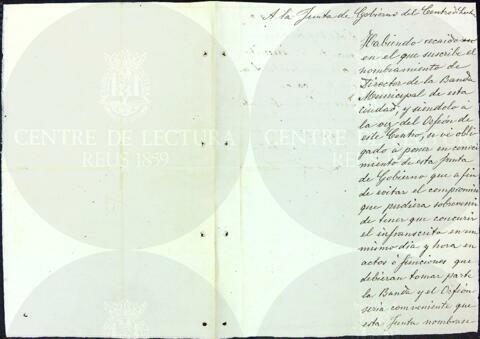 A la Junta de Gobierno del Centro de
Habiendo recaido
en el que suscribe el
nombramiento de
Director de la Banda
Municipal de esta
ciudad, y siendolo á
la vez del Orfeón de
este Centro, se vé obli-
gado á poner en conoci-
miento de esta Junta
de Gobierno que a fin
de evitar el compromiso
que pudiera sobrevenir
de tener que concurrir
el infrascrito en un
mismo dia y hora en
actos ó funciones que
debieran tomar parte
la Banda y el Orfeón
seria conveniente que
esta Junta nombrase
CENTRE DE LECTURA
REUS 1859
CENTRE DE LECTURA
REUS 1859